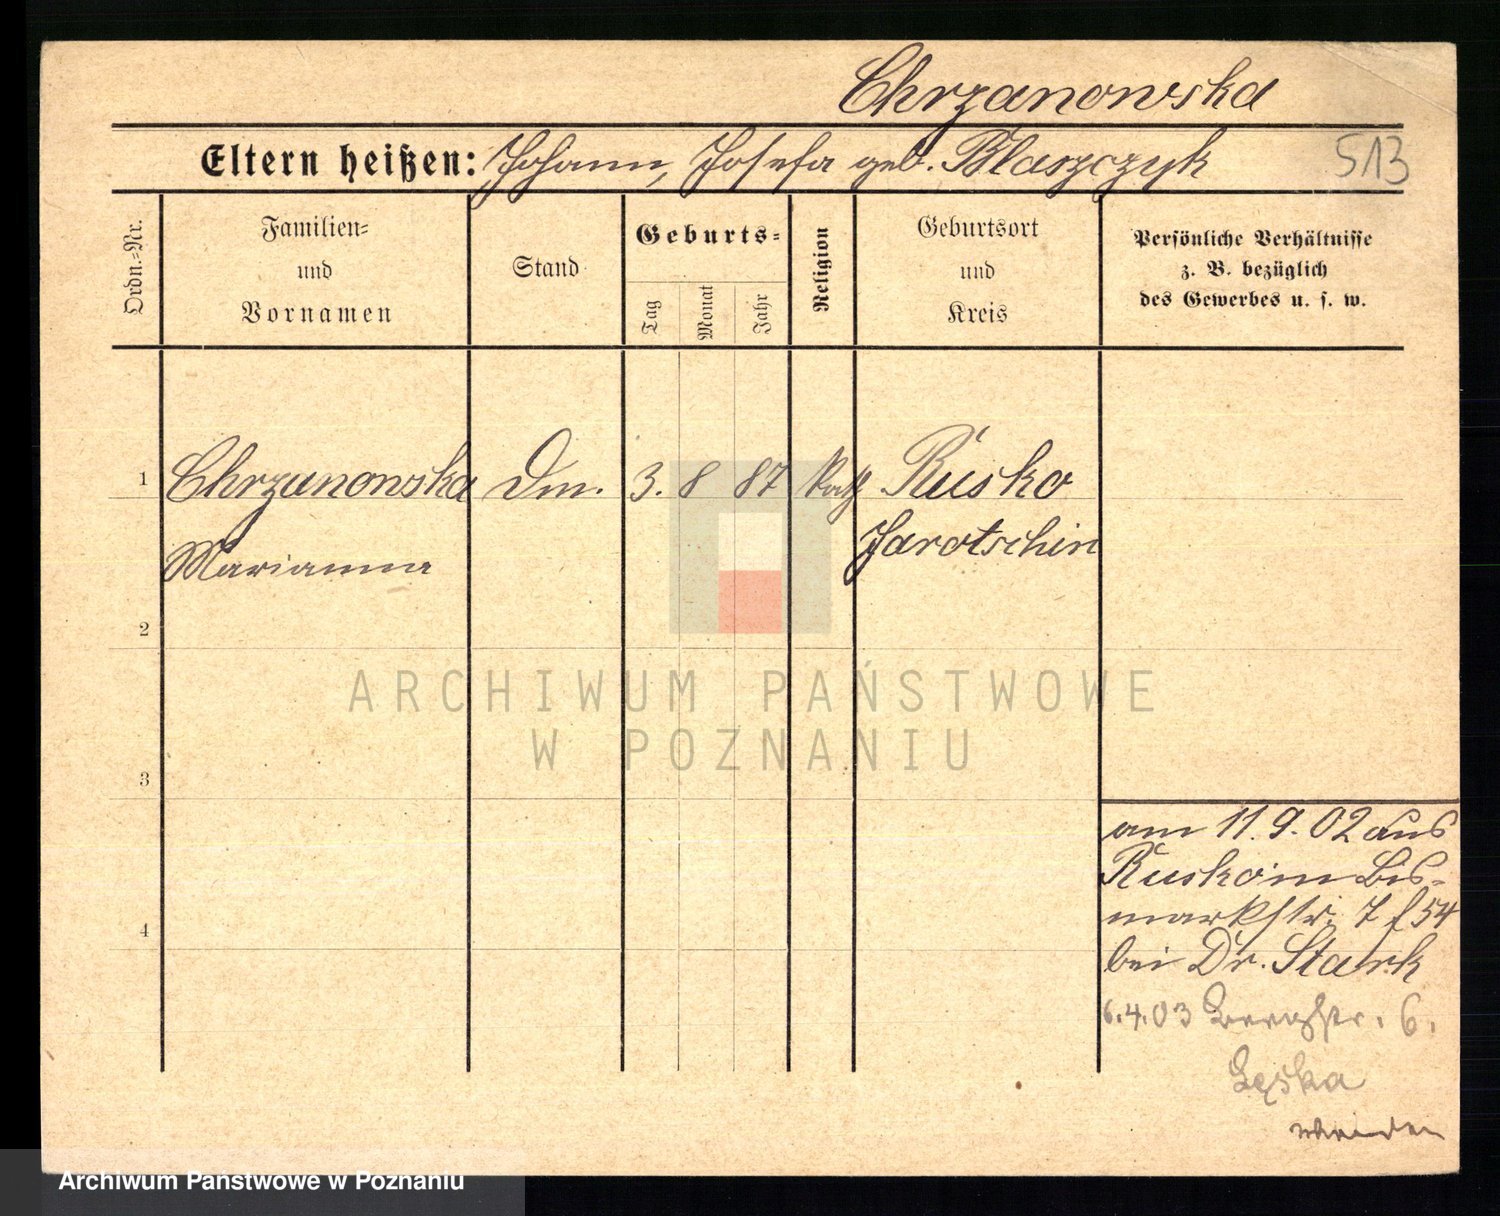 Chrzanowska
Eltern heißen: Johann, Josefa geb. Blaszczyk
513
Ordn.-Nr.
Familien-
und
Vornamen
Stand
Geburts-
Tag
Monat
Jahr
Religion
Geburtsort
und
Kreis
Persönliche Verhältnisse
z. B. bezüglich
des Gewerbes u. s. w.
1 Chrzanowska Dm. 3. 8 87 kath Rusko
Marianna Jarotschin
2
3
4
ARCHIWUM PAŃSTWOWE
W POZNANIU
am 11.9.02 aus
Rusko in Bis-
markstr. 7 f 54
bei Dr. Stark
6.4.03 Bergstr. 6.
wenden
Archiwum Państwowe w Poznaniu